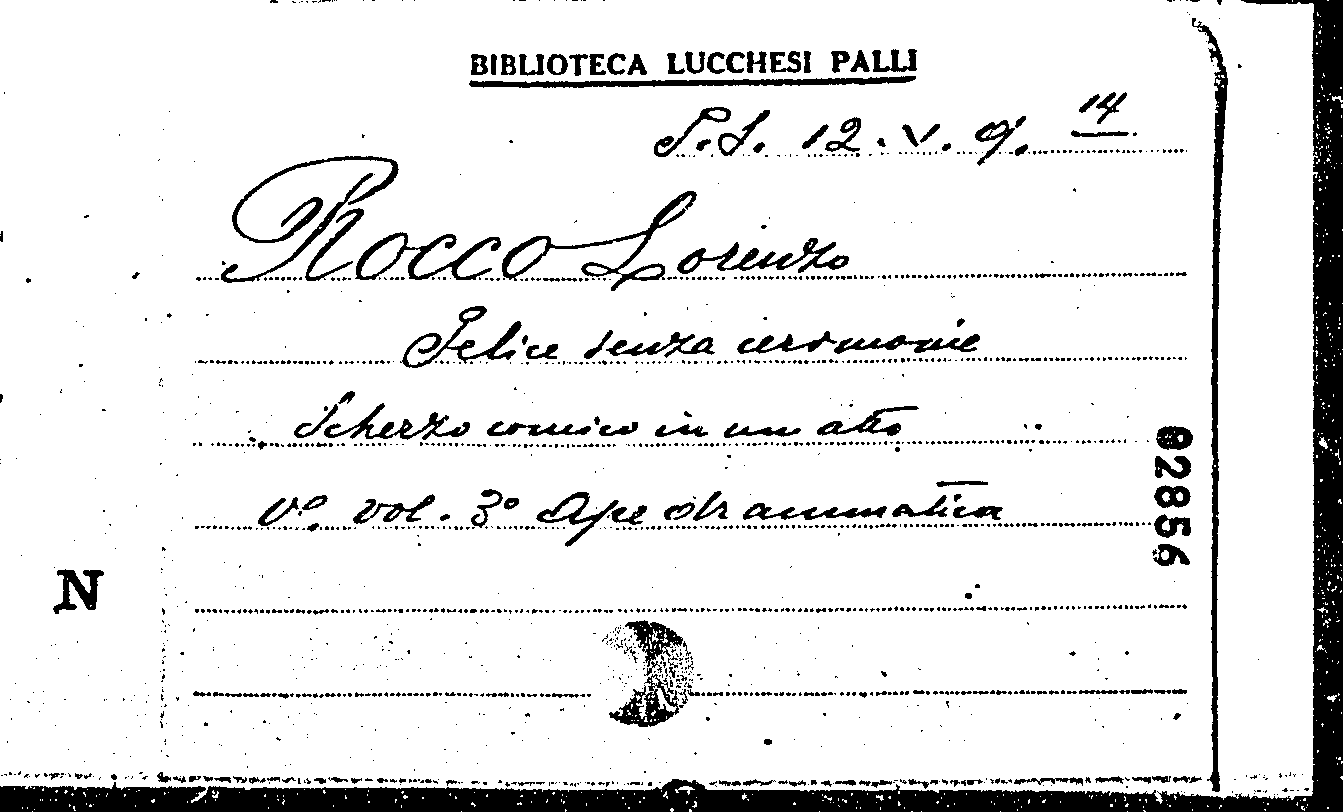 BIBLIOTECA LUCCHESI PALLI
S.S. 12. V. 9. 14
Rocco Lorenzo
Felice senza cerimonie
Scherzo comico in un atto
Vº. vol. 3º Ape drammatica
02856
N